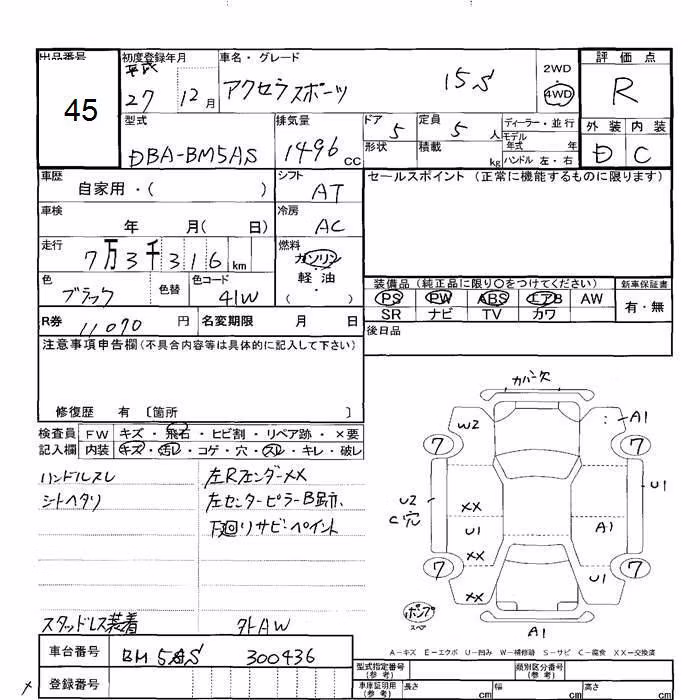 出品番号 45
初度登録年月 平成 27 12月
車名・グレード アクセラスポーツ 15S
2WD 4WD
評価点 R
型式 DBA-BM5AS
排気量 1496 CC
ドア 5
定員 5 人
ディーラー・並行
モデル年式 年
形状
積載 kg
ハンドル 左・右
外装 内装
D C
車歴 自家用・( )
シフト AT
セールスポイント (正常に機能するものに限ります)
車検 年 月( 日)
冷房 AC
走行 7万3千316 km
燃料 ガソリン・軽油・( )
色 ブラック 色替
色コード 41W
装備品 (純正品に限り○をつけてください)
新車保証書
PS PW ABS エアB AW
有・無
SR ナビ TV カワ
R券 11070 円 名変期限 月 日
後日品
注意事項申告欄(不具合内容等は具体的に記入して下さい)
修復歴 有 〔箇所 〕
検査員記入欄
FW キズ・飛石・ヒビ割・リペア跡・×要
内装 キズ・汚レ・コゲ・穴・スレ・キレ・破レ
ハンドルスレ
シートヘタリ
左Rフェンダー××
左センターピラーB跡有、
下廻りサビ・ペイント
スタッドレス装着
外AW
カバー欠
W2
A1
7 7
U2
C穴
XX
U1
XX
A1
U1
7 7
XX
U1
ポンプ
スペア
A1
A－キズ E－エクボ U－凹み W－補修跡 S－サビ C－腐食 XX－交換済
車台番号 BM5AS 300436
登録番号
型式指定番号(参考)
類別区分番号(参考)
車庫証明用(参考) 長さ cm 幅 cm 高さ cm